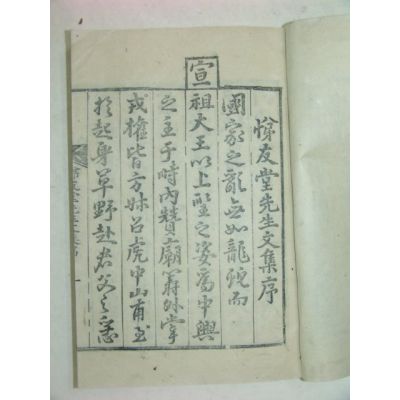 悌友堂先生文集序
國家之亂無如龍蛇而
宣祖大王以上聖之姿爲中興
之主于時內贊廟籌外掌
戎權皆方叔召虎中山甫至
於起身草野赴君父之急